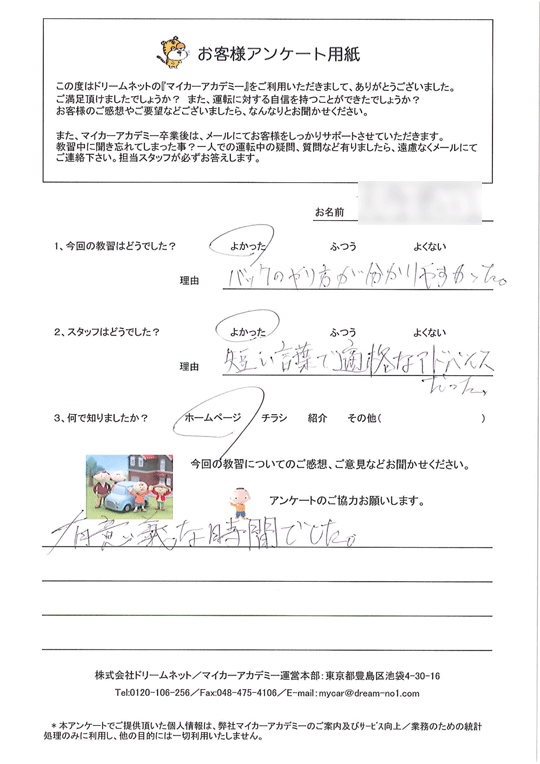 お客様アンケート用紙
この度はドリームネットの『マイカーアカデミー』をご利用いただきまして、ありがとうございました。
ご満足頂けましたでしょうか? また、運転に対する自信を持つことができたでしょうか?
お客様のご感想やご要望などございましたら、なんなりとお聞かせください。
また、マイカーアカデミー卒業後は、メールにてお客様をしっかりサポートさせていただきます。
教習中に聞き忘れてしまった事?一人での運転中の疑問、質問など有りましたら、遠慮なくメールにて
ご連絡下さい。担当スタッフが必ずお答えします。
お名前
1、今回の教習はどうでした? よかった ふつう よくない
理由 バックのやり方が分かりやすかった。
2、スタッフはどうでした? よかった ふつう よくない
理由 短い言葉で適格なアドバイス
だった。
3、何で知りましたか? ホームページ チラシ 紹介 その他( )
今回の教習についてのご感想、ご意見などお聞かせください。
アンケートのご協力お願いします。
有意義な時間でした。
株式会社ドリームネット/マイカーアカデミー運営本部:東京都豊島区池袋4-30-16
Tel:0120-106-256/Fax:048-475-4106/E-mail:mycar@dream-no1.com
*本アンケートでご提供頂いた個人情報は、弊社マイカーアカデミーのご案内及びサービス向上/業務のための統計
処理のみに利用し、他の目的には一切利用いたしません。